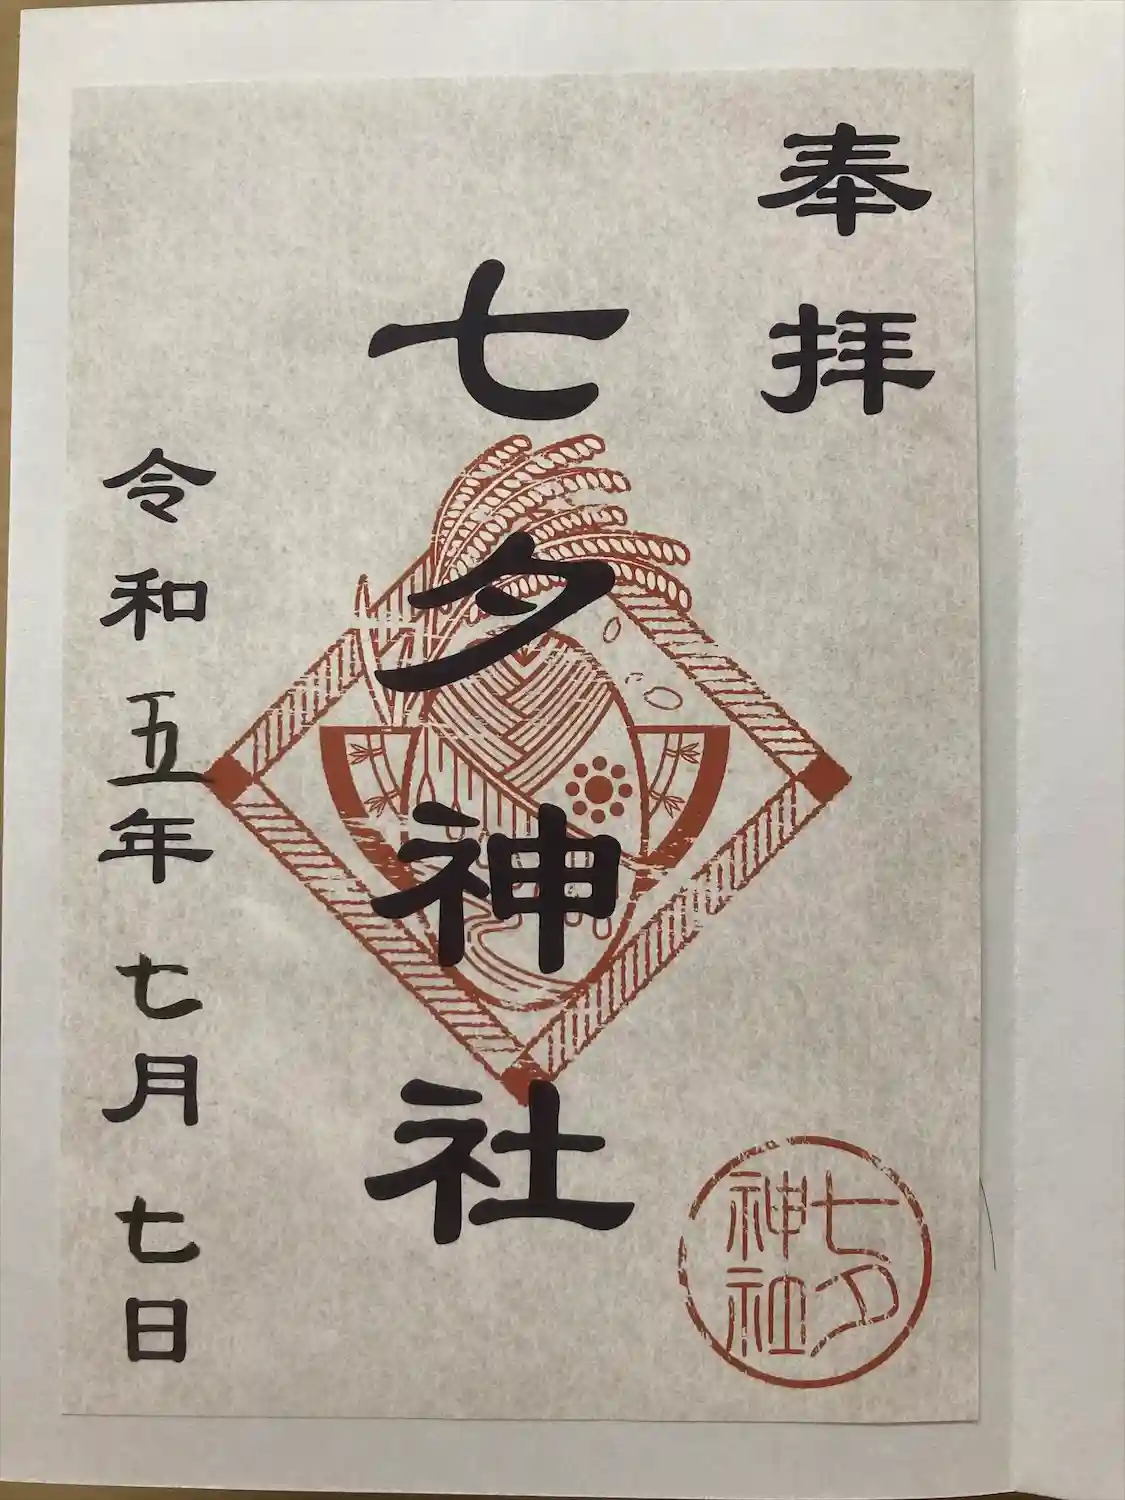 奉拝
七夕神社
令和五年七月七日
七夕
神社